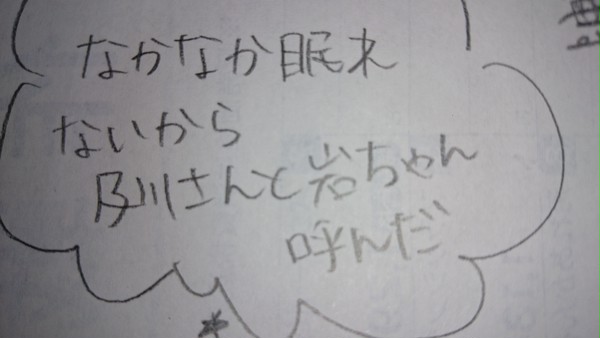 なかなか眠れ
ないから
及川さんと岩ちゃん
呼んだ